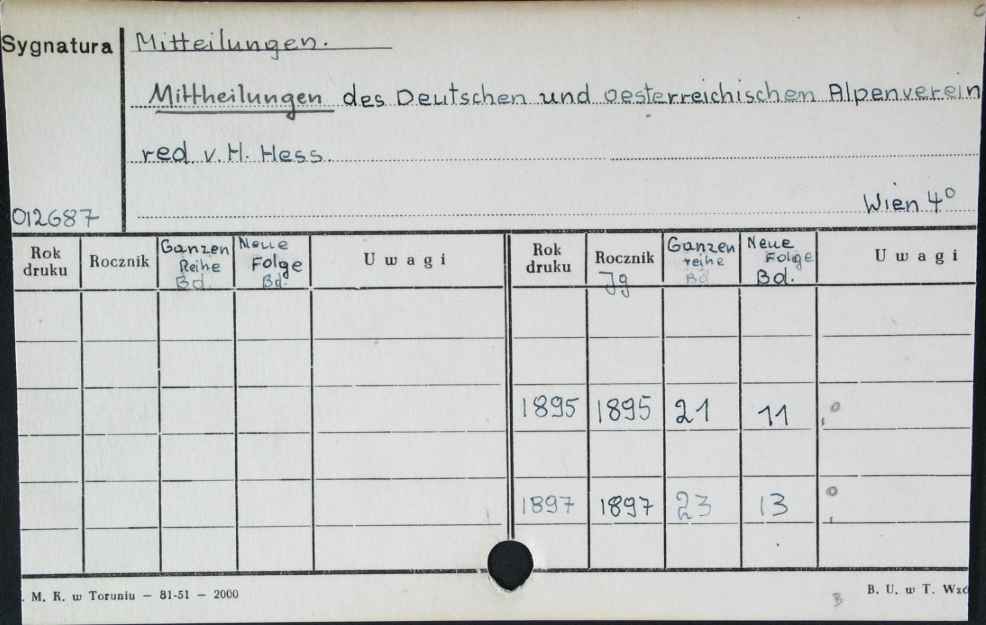 Sygnatura Mitteilungen.
Mittheilungen des Deutschen und Oesterreichischen Alpenverein
red v. H. Hess.
012687 Wien 4°
Rok druku Rocznik Ganzen Reihe Bd. Neue Folge Bd. Uwagi Rok druku Rocznik Jg Ganzen reihe Bd Neue Folge Bd. Uwagi
1895 1895 21 11 o
1897 1897 23 13 o
. M. R. w Toruniu – 81-51 – 2000 B B. U. w T. Wzó